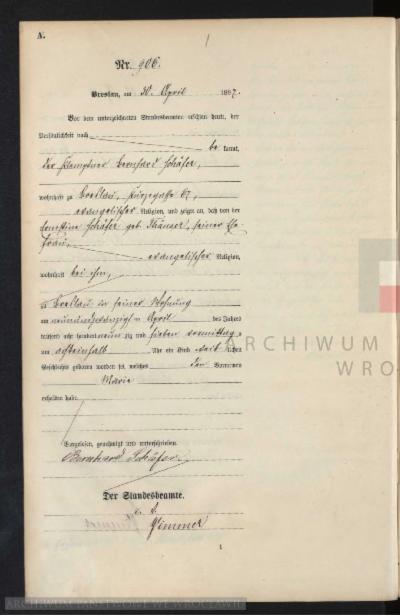 A.
1
Nr. 906.
Breslau, am 30. April 1897.
Vor dem unterzeichneten Standesbeamten erschien heute, der
Persönlichkeit nach
be kannt,
der Klemptner Bernhard Schäfer,
wohnhaft zu Breslau, 67,
evangelischer Religion, und zeigte an, daß von der
Ernestine Schäfer geb. seiner Ehe-
frau,
evangelischer Religion,
wohnhaft bei ihm,
zu Breslau in seiner Wohnung
am neunundzwanzigsten April des Jahres
tausend acht hundert neunzig und sieben vormittags
um achteinhalb Uhr ein Kind weiblichen
Geschlechts geboren worden sei, welches den Vornamen
Marie
erhalten habe.
Vorgelesen, genehmigt und unterschrieben
Bernhard Schäfer.
Der Standesbeamte.
ARCHIWUM
WRO
ARCHIWUM PAŃSTWOWE WE WROCŁAWIU